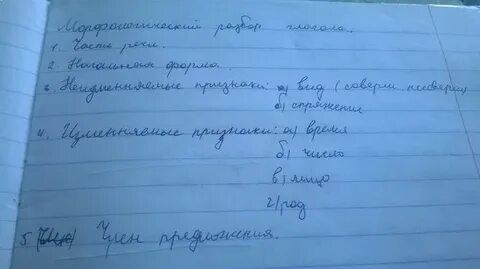 Морфологический разбор глагола.
1. Часть речи.
2. Начальная форма.
3. Неизменяемые признаки: а) вид (соверш. несоверш)
б) спряжение
4. Изменяемые признаки: а) время
б) число
в) лицо
г) род
5. Член предложения.